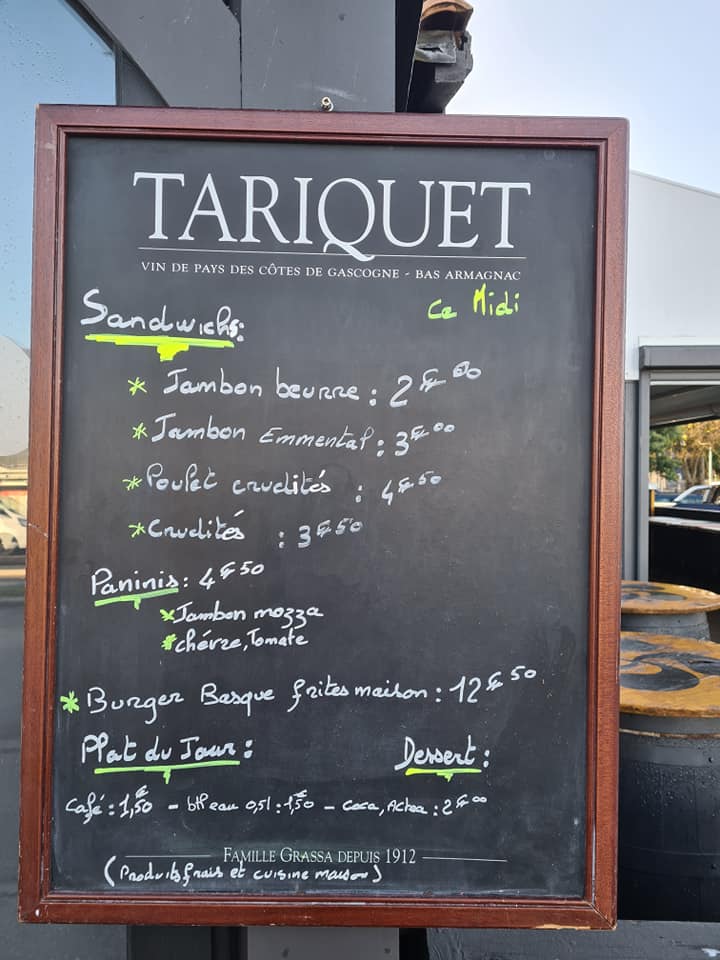 TARIQUET
VIN DE PAYS DES CÔTES DE GASCOGNE - BAS ARMAGNAC
Ce Midi
Sandwichs:
* Jambon beurre : 2€00
* Jambon Emmental : 3€00
* Poulet crudités : 4€50
* Crudités : 3€50
Paninis : 4€50
* Jambon mozza
* chévre, Tomate
* Burger Basque frites maison : 12€50
Plat du Jour : Dessert :
Café : 1,50€ - btl eau 0,5l : 1,50€ - Coca, Actea : 2€00
FAMILLE GRASSA DEPUIS 1912
(Produits frais et cuisine maison)